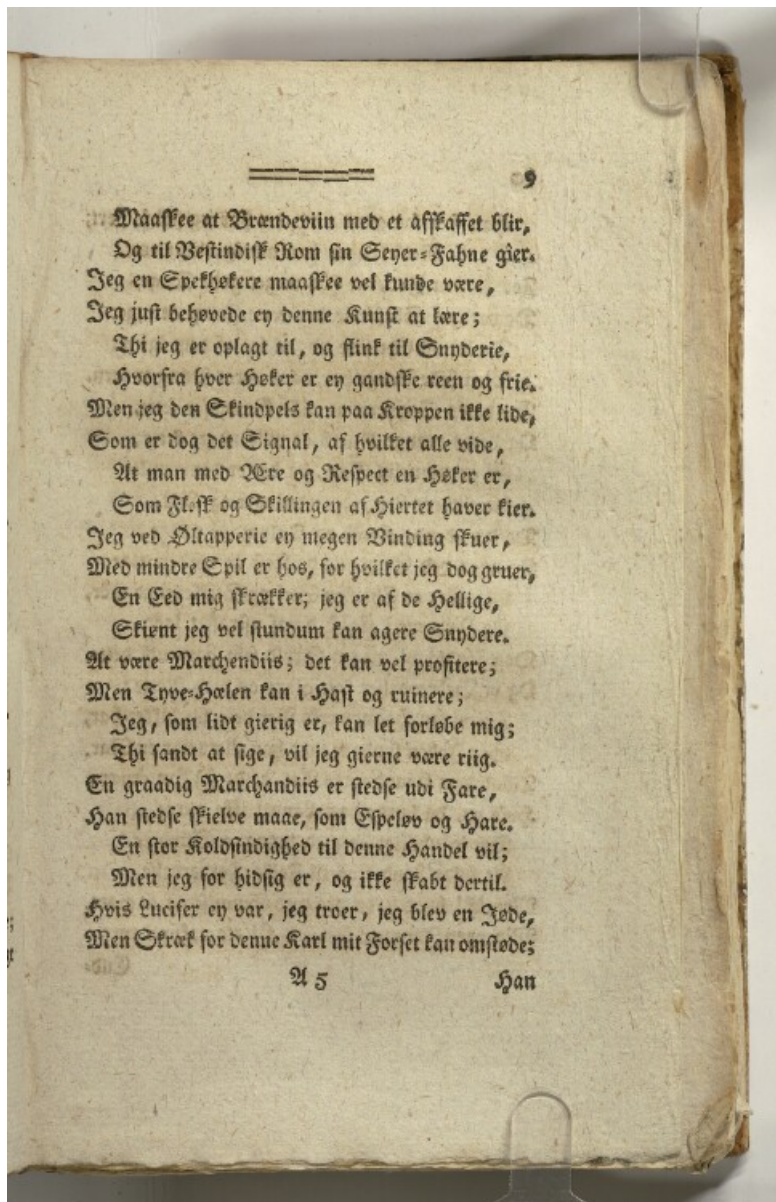 9
Maaskee at Brændeviin med et afskaffet blir,
Og til Vestindisk Rom sin Seyer-Fahne gier.
Jeg en Spekhøkere maaskee vel kunde være,
Jeg just behøvede ey denne Kunst at lære;
Thi jeg er oplagt til, og flink til Snyderie,
Hvorfra hver Høker er ey gandske reen og frie.
Men jeg den Skindpels kan paa Kroppen ikke lide,
Som er dog det Signal, af hvilket alle vide,
At man med Ære og Respect en Høker er,
Som Flesk og Skillingen af Hiertet haver kier.
Jeg ved Øltapperie ey megen Vinding skuer,
Med mindre Spil er hos, for hvilket jeg dog gruer,
En Eed mig skrækker; jeg er af de Hellige,
Skiønt jeg vel stundum kan agere Snydere.
At være Marchendiis; det kan vel profitere;
Men Tyve-Hælen kan i Hast og ruinere;
Jeg, som lidt gierig er, kan let forløbe mig;
Thi sandt at sige, vil jeg gierne være riig.
En graadig Marchandiis er stedse udi Fare,
Han stedse skielve maae, som Espeløv og Hare.
En stor Koldsindighed til denne Handel vil;
Men jeg for hidsig er, og ikke skabt dertil.
Hvis Lucifer ey var, jeg troer, jeg blev en Jøde,
Men Skræk for denne Karl mit Forset kan omstøde;
A 5 Han